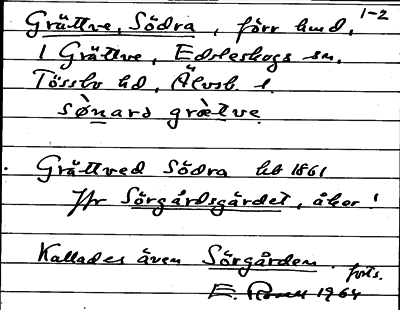 1-2
Grättve, Södra, förr hmd,
i Grättve, Edsleskogs sn,
Tössbo hd, Älvsb. l.
sø̀nard grætve.
Grättved Södra hb 1861
Jfr Sörgårdsgärdet, åker!
Kallades även Sörgården. forts.
E. 1964